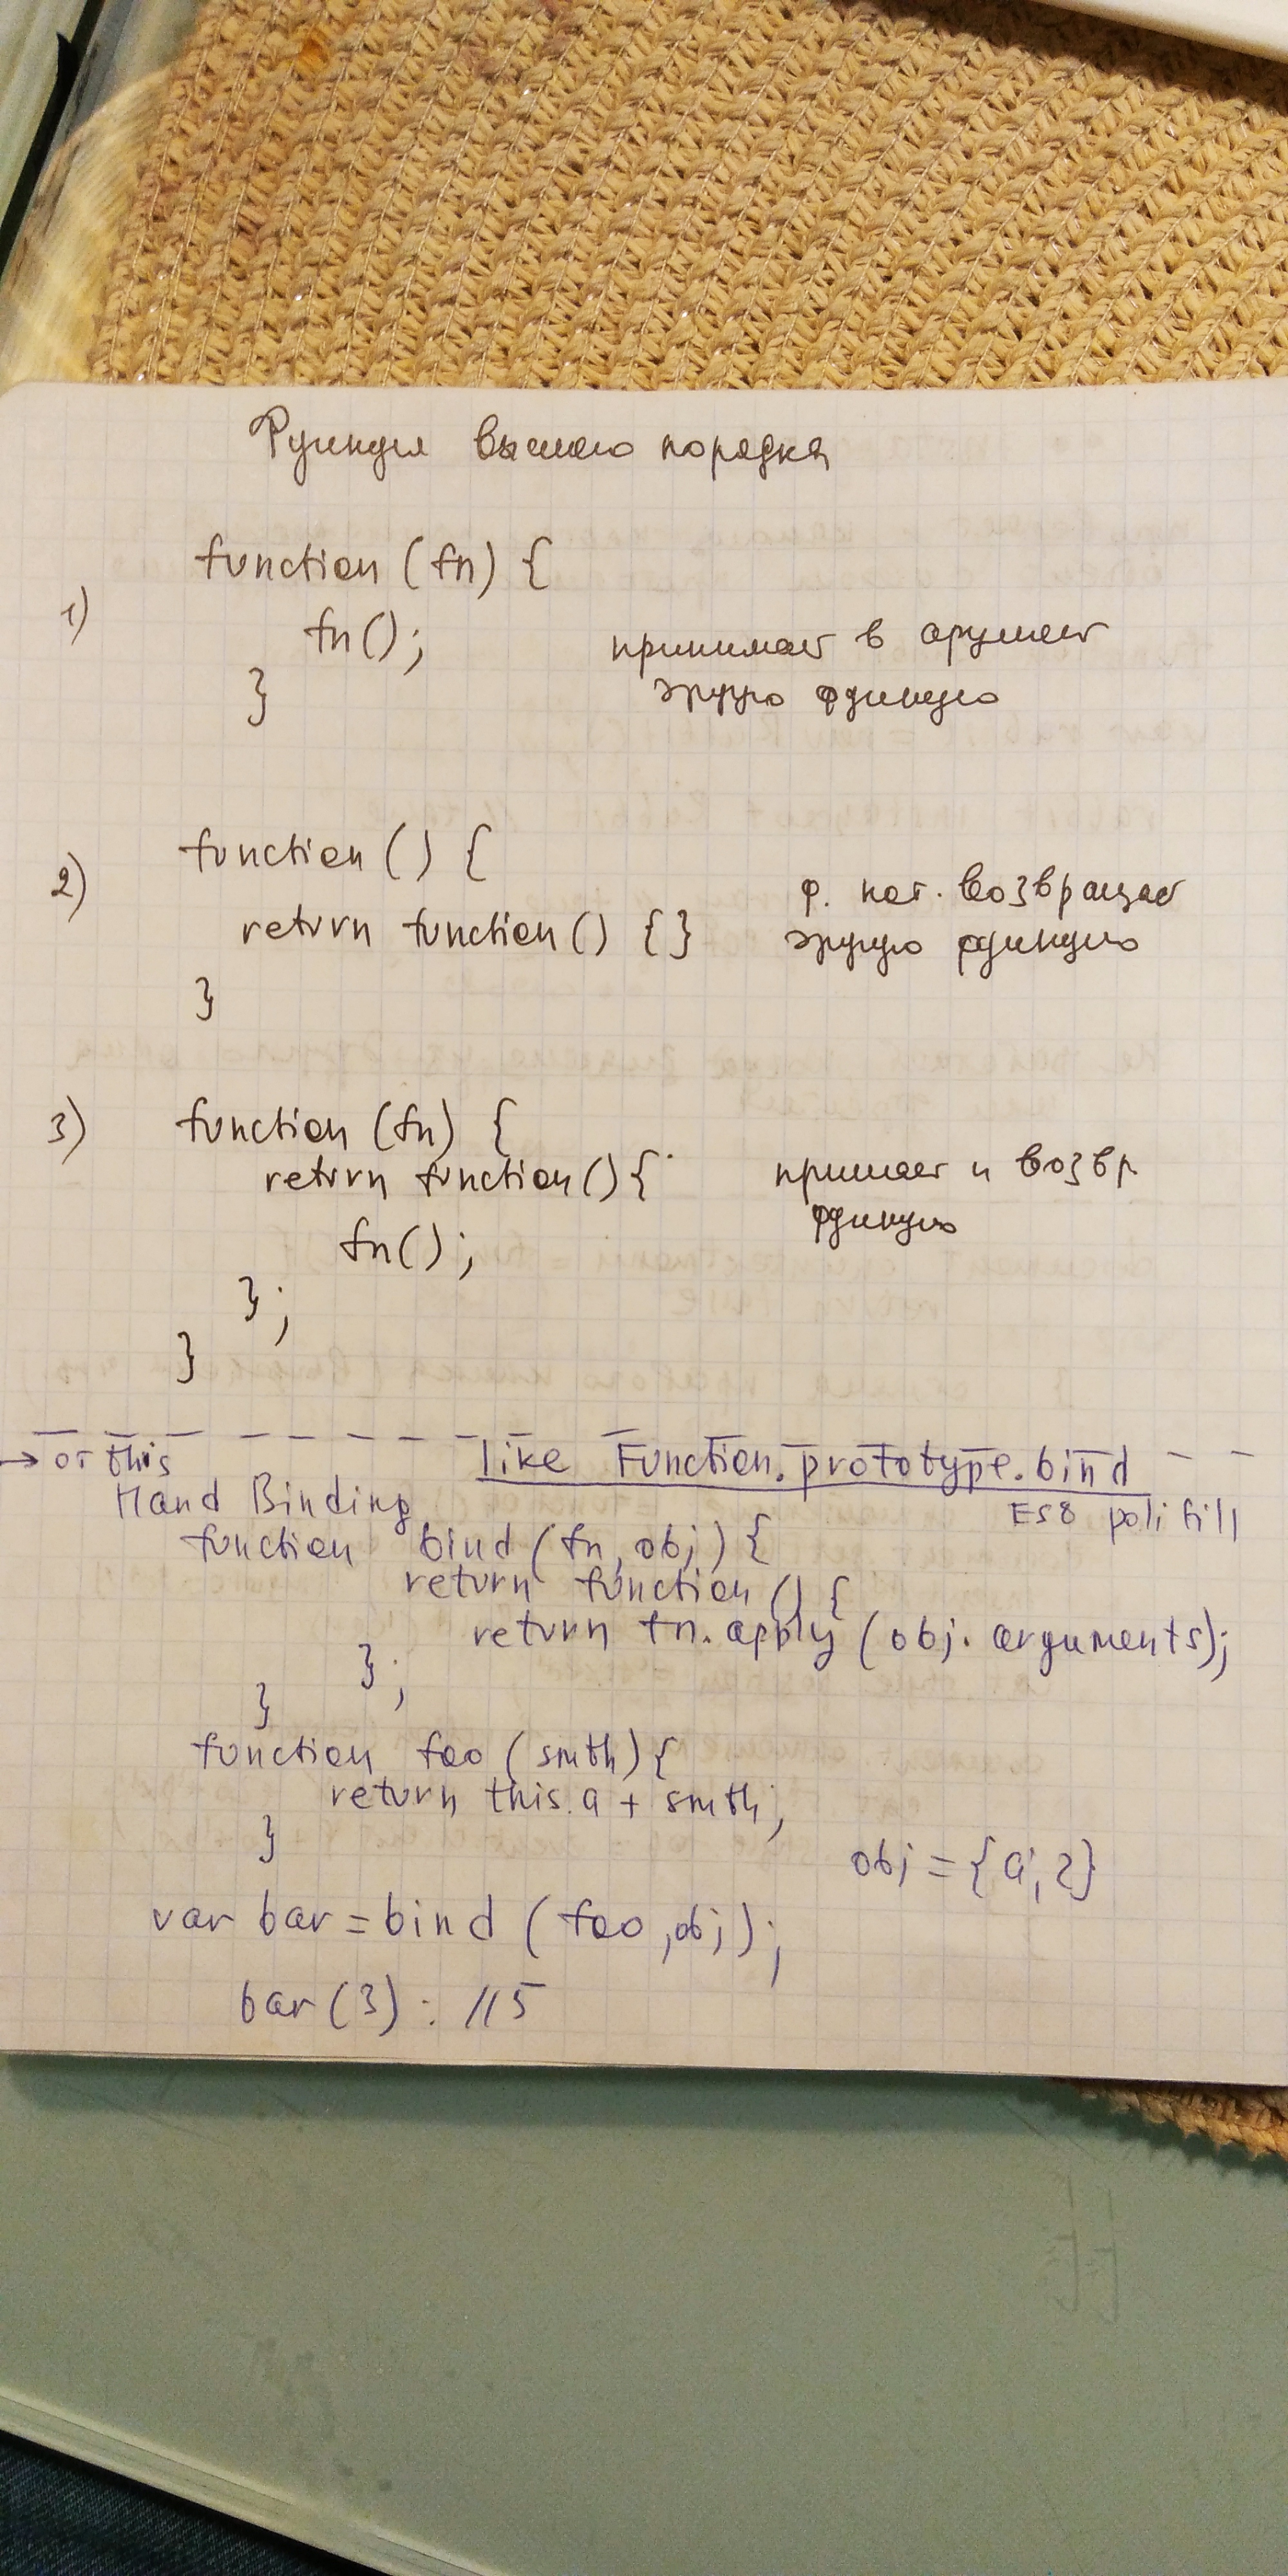 Функция высшего порядка
1)
function (fn) {
fn();
}
принимает в аргумент
другую функцию
2)
function () {
return function () {}
}
ф. кот. возвращает
другую функцию
3)
function (fn) {
return function () {
fn();
};
}
принимает и возвр
функцию
→ от this
like Function.prototype.bind
Hand Binding
ES8 polifill
function bind (fn, obj) {
return function () {
return fn.apply (obj. arguments);
};
}
function foo (smth) {
return this.a + smth;
}
obj = {a; 2}
var bar = bind (foo, obj);
bar (3) : //5